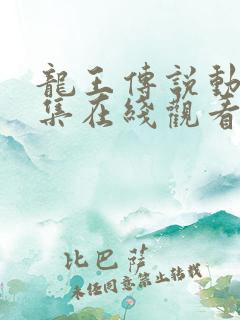 龍王傳說動
集在綫觀看
比巴薩
未經同意禁止轉載